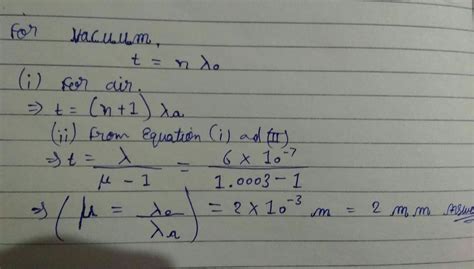 For vacuum,
t = n λ₀
(i) For air.
⇒ t = (n+1) λa
(ii) From Equation (i) ad (II)
⇒ t = λ / (μ - 1) = 6 × 10⁻⁷ / (1.0003 - 1)
⇒ (μ = λ₀ / λa) = 2 × 10⁻³ m = 2 mm Answer